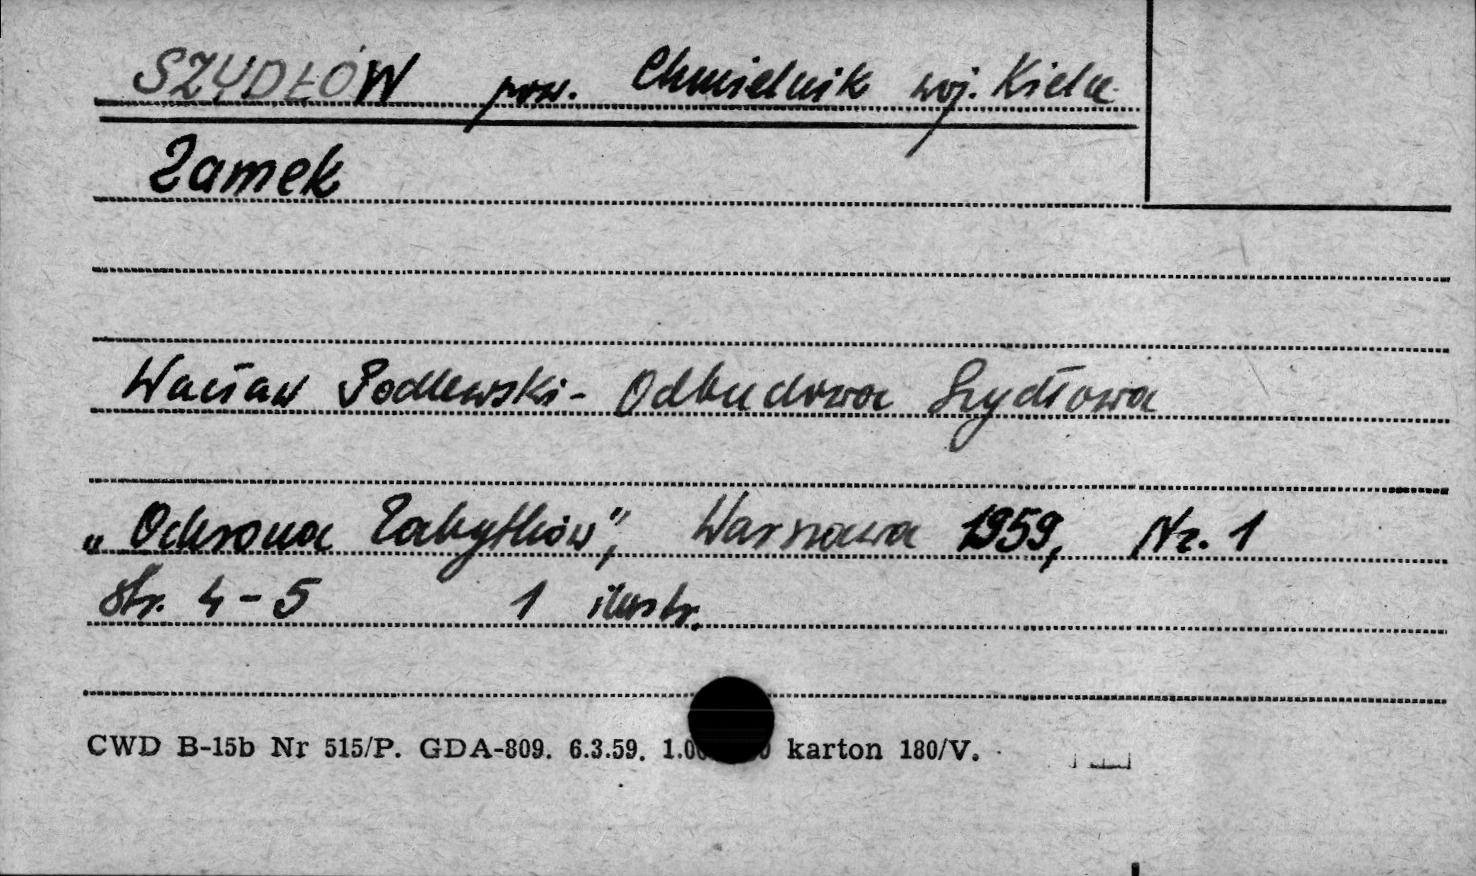 SZYDŁÓW pow. Chmielnik woj. Kielce
Zamek
Wacław Podlewski - Odbudowa Szydłowa
„Ochrona Zabytków", Warszawa 1959, Nr. 1
str. 4-5 1 ilustr.
CWD B-15b Nr 515/P. GDA-809. 6.3.59. karton 180/V.